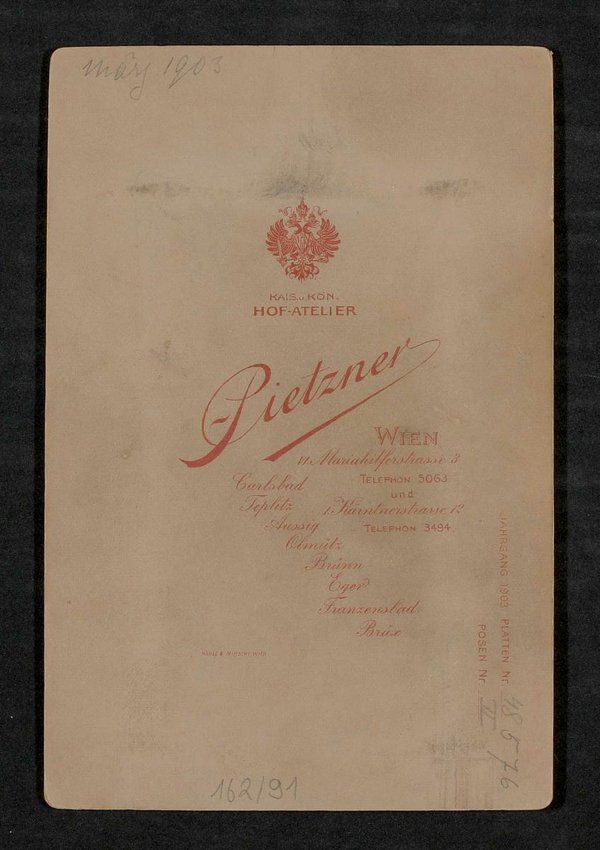 März 1903
KAIS. u. KÖN.
HOF-ATELIER
Pietzner
WIEN
VI. Mariahilferstrasse 3
Carlsbad
TELEPHON 5063
und
Teplitz
I. Kärntnerstrasse 12
Aussig
TELEPHON 3494.
Olmütz
Brünn
Eger
Franzensbad
Brüx
JAHRGANG 1903 PLATTEN Nr. 48576
POSEN Nr. II
162/91